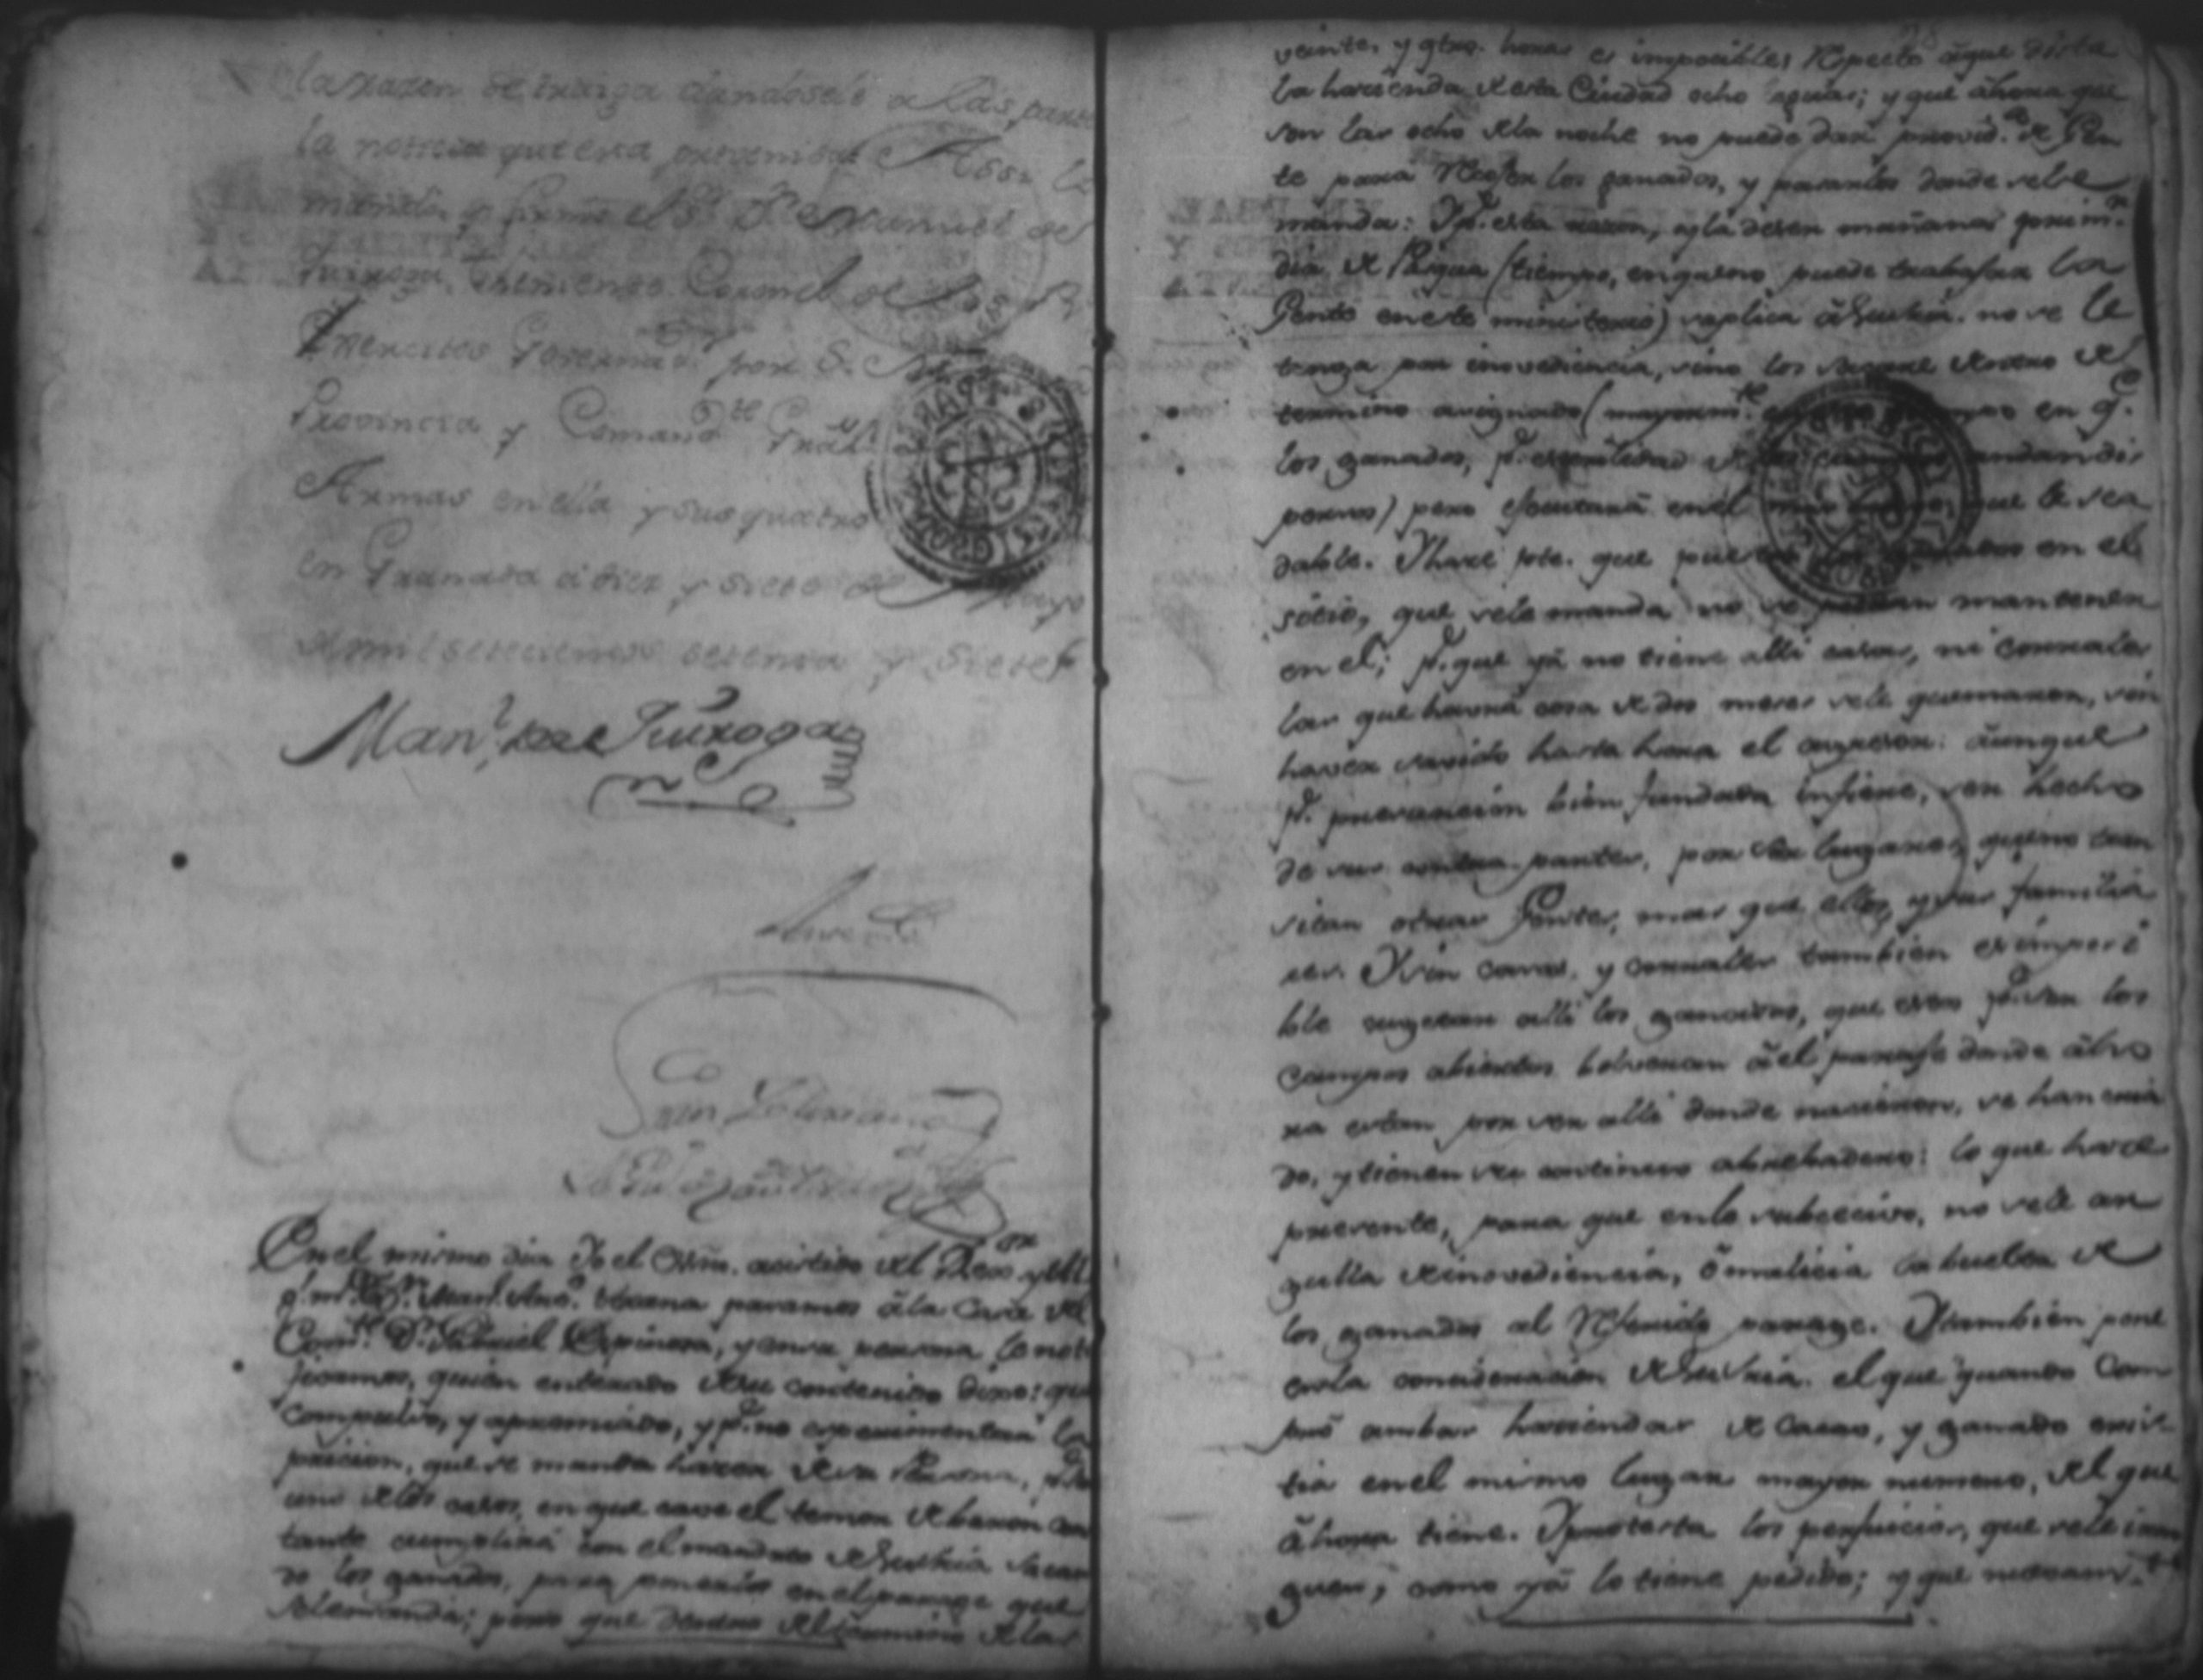 la razon se traiga dandosele a las partes
la noticia que sea
manda y firma el S.r D.n Manuel de
Quiroga Theniente Coronel de los R.s
Exercitos Governad.or por S. M.
Provincia y Comand.te Gral de
Armas en ella y sus quatro
en Granada a diez y siete de Mayo
de mil setecientos setenta y siete
Man.l de Quiroga
En el mismo dia Yo el Ssno. asistido del
pasamos â la Casa del
Com.te D.n Gabriel Espinosa, y en su persona le noti
ficamos, quien enterado de su contenido dixo: que
compulso, y apremiado, y p.r no experimentar la
pricion, que se manda hazer de su Persona, p.r
uno de los casos, en que cave el temor de baron con
tante cumplirá con el mandato de su Sria sacan
do los ganados, para ponerlos en el parage que
se le manda; pero que dentro del termino de las
veinte, y qtro. horas es imposible, respecto âque dista
la hacienda de esta Ciudad ocho leguas; y que âhora que
son las ocho de la noche no puede dar provid.a de Gen
te para recojer los ganados, y pasarlos donde se le
manda: Y p.r esta razon, y la deser mañana prim.r
dia de Pasqua (tiempo, en que no puede trabajar la
Gente en este ministerio) suplica â su Sria. no se le
tenga por inovediencia, sino los dentro del
termino asignado (mayorm.te en q.e
los ganados, p.r andan dis
persos) pero ejecutará en el que le sea
dable. Y hace pte. que puestos los ganados en el
sitio, que se le manda no se podran mantener
en el; p.r que yá no tiene alli casas, ni corrales
las que havrá cosa de dos meses se le quemaron, sin
haver savido hasta hora el agresor: âunque
p.r presuncion bien fundada infiere, ser hecho
de sus contra partes, por ser lugares, que no tran
sitan otras Gentes, mas que ellos, y sus familia
res. Y sin casas, y corrales tambien es imposi
ble sugetar alli los ganados, que esos p.r ser los
campos abiertos bolveran â el parage donde âho
ra estan por ser alli donde nacieron, se han cria
do, y tienen su continuo abrebadero: lo que hace
presente, para que en lo subcecivo, no se le ar
gulla de inovediencia, ô malicia la buelta de
los ganados al referido parage. Y tambien pone
en la concideracion de su Sria. el que quando com
pró ambas haciendas de Cacao, y ganado exis
tia en el mismo lugar mayor numero, del que
âhora tiene. Y protesta los perjuicios, que se le irro
guen, como yá lo tiene pedido; y que